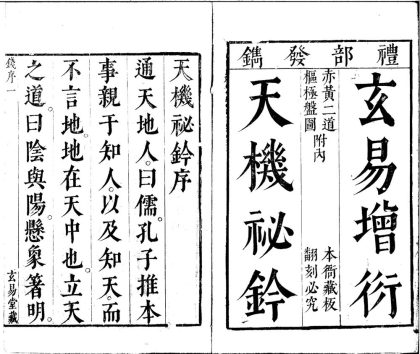 禮部發鐫
玄易增衍
赤黃二道
樞極盤圖
附內
本衙藏板
翻刻必究
天機祕鈐
天機祕鈐序
通天地人曰儒孔子推本
事親于知人以及知天而
不言地地在天中也立天
之道曰陰與陽懸象著明
錢序一
玄易堂藏